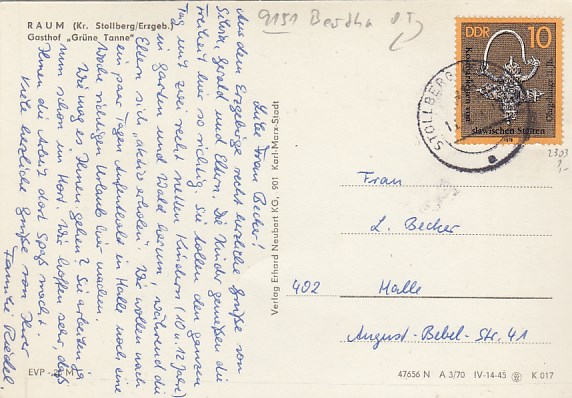 RAUM (Kr. Stollberg/Erzgeb.)
Gasthof „Grüne Tanne"
9151
Liebe Frau Becher!
Aus dem Erzgebirge recht herzliche Grüße von
Gerald und Eltern. Die Kinder genießen die
Freiheit hier so richtig. Sie tollen den ganzen
Tag mit zwei recht netten Kindern (10 u. 12 Jahre)
in Garten und Wald herum, während die
Eltern sich „aktiv erholen". Wir wollen nach
ein paar Tagen Aufenthalt in Halle noch eine
Woche richtigen Urlaub hier machen.
Wie mag es Ihnen gehen? Sie arbeiten ja
nun schon im Hort. Wir hoffen sehr, daß
Ihnen die Arbeit dort Spaß macht.
Viele herzliche Grüße von Ihrer
Familie Riedel.
EVP
M
Verlag Erhard Neubert KG, 901 Karl-Marx-Stadt
DDR 10
slawischen Stätten
STOLLBERG
a
2303
Frau
L. Becher
402 Halle
August-Bebel-Str. 41
47656 N A 3/70 IV-14-45 K 017